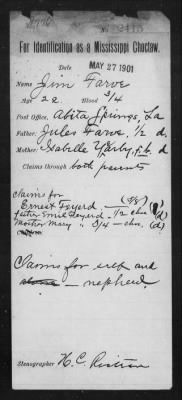 For Identification as a Mississippi Choctaw.
Date MAY 27 1901
Name Jim Farve
Age 22 Blood 3/4
Post Office, Abita Springs, La
Father: Jules Farve, 1/2 d
Mother: Isabelle Yarby, f.b. d
Claims through both parents
Claims for
Ernest Feyerd (3/8)
father Emile Feyerd - 1/2 choc. (d)
Mother Mary " 3/4 - choc. (d)
Claims for self and
nephew.
Stenographer H.C.